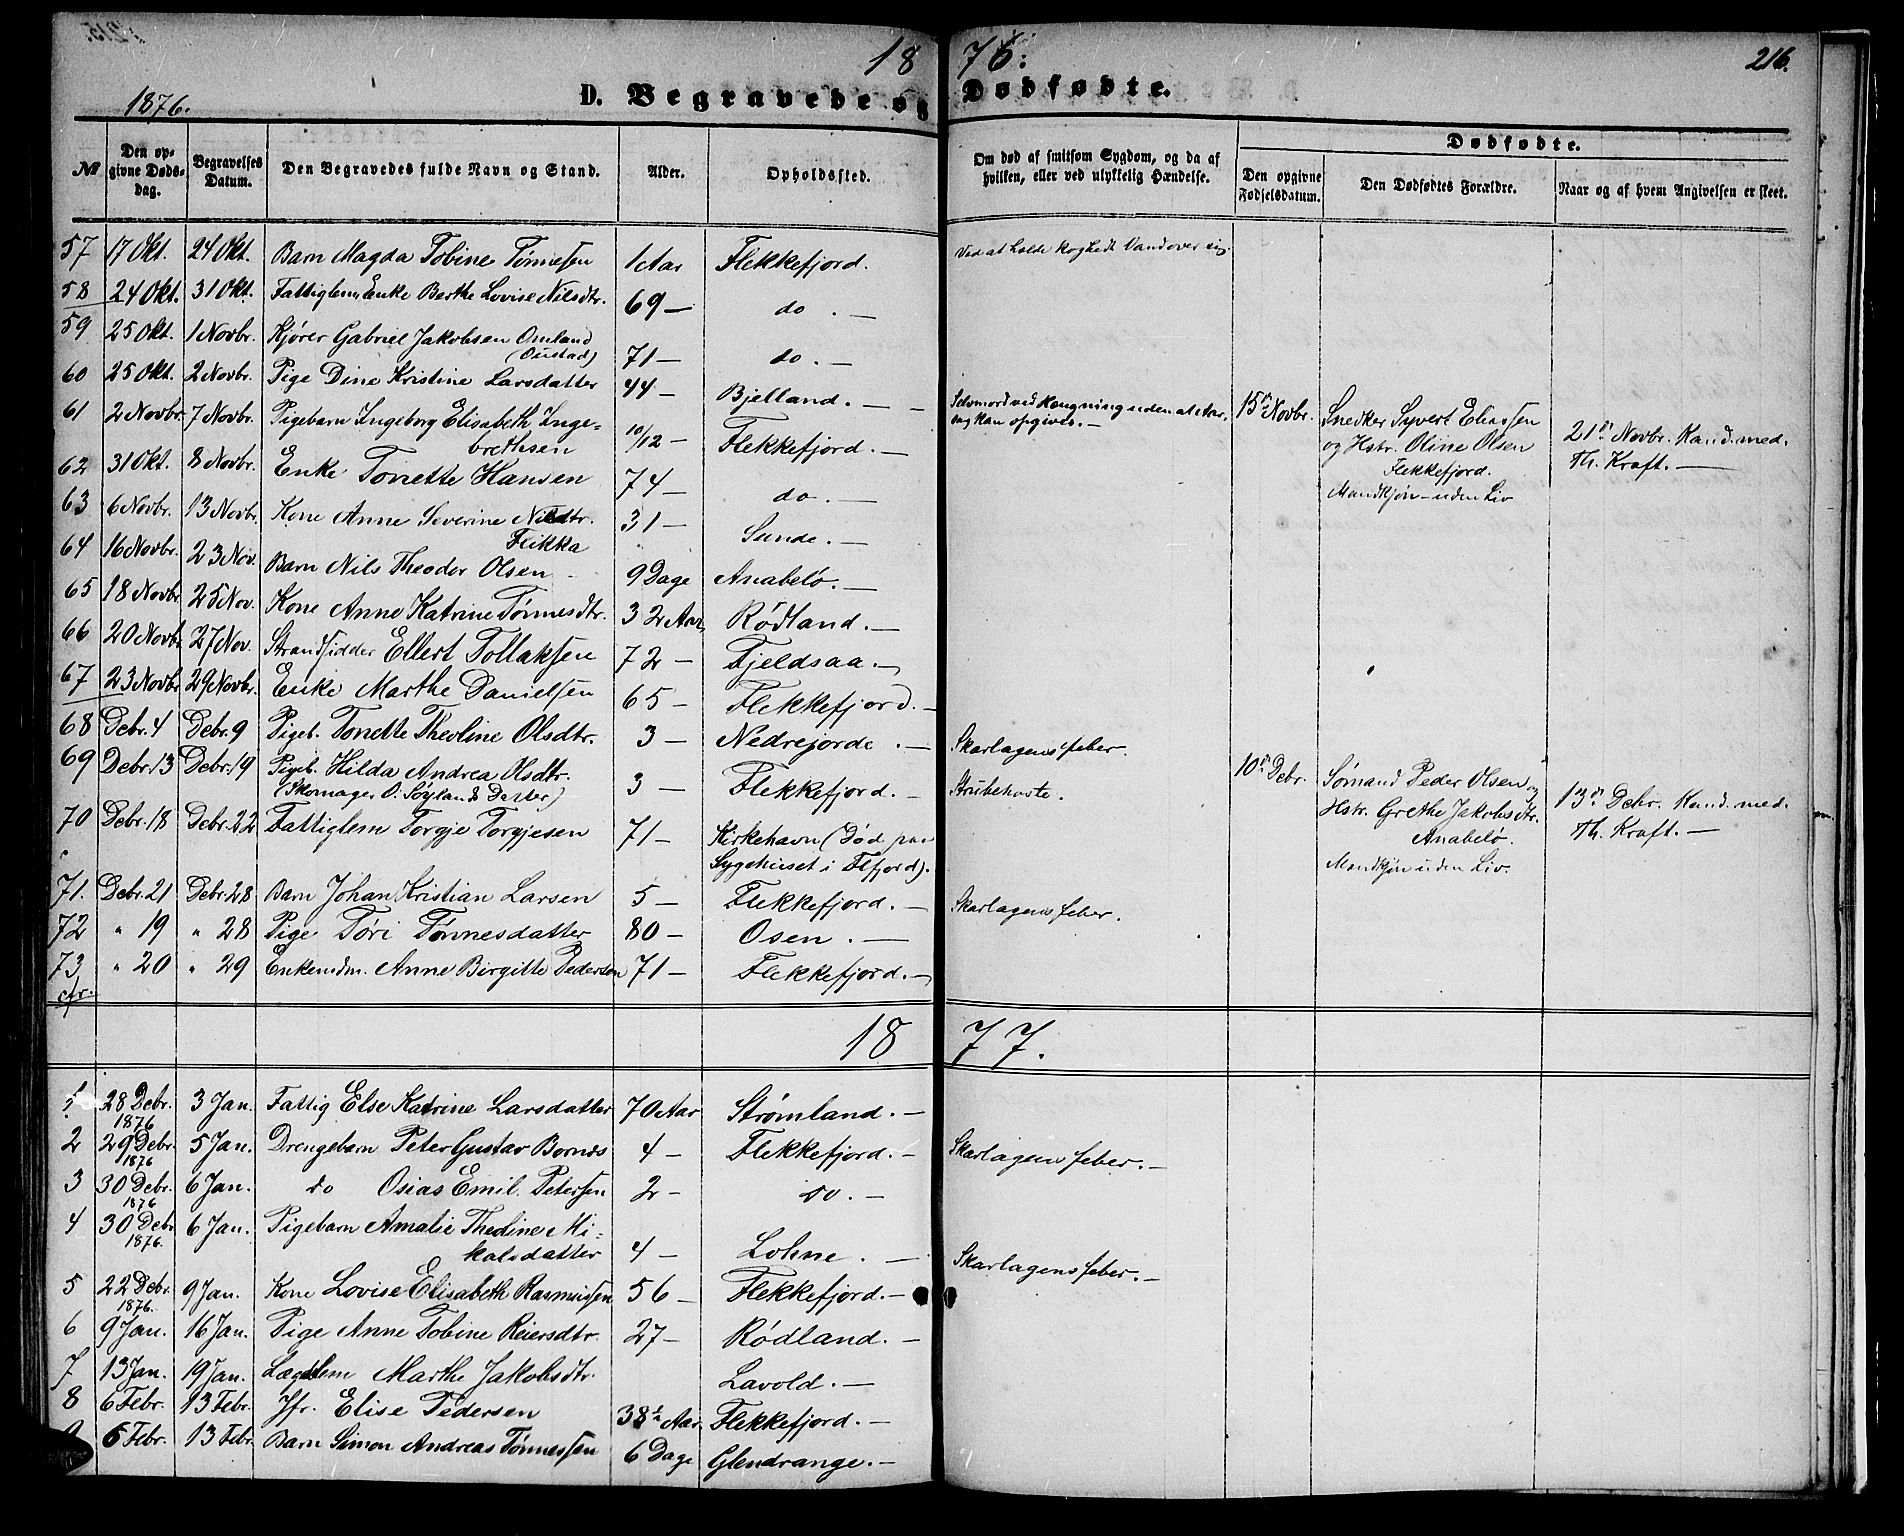 1876.
216.
1876.
D. Begravede og Dødfødte.
№ | Den opgivne Dødsdag. | Begravelses Datum. | Den Begravedes fulde Navn og Stand. | Alder. | Opholdssted. | Om død af smitsom Sygdom, og da af hvilken, eller ved ulykkelig Hændelse. | Dødfødte. | Den opgivne Fødselsdatum. | Den Dødfødtes Forældre. | Naar og af hvem Angivelsen er skeet.
57 17 Okt. 24 Okt. Barn Magda Tobine Tønnesen 1 Aar Flekkefjord. Ved at holde koghedt Vand over sig.
58 24 Okt. 31 Okt. Fattiglem, Enke Berthe Lovise Nilsdtr. 69 — do. —
59 25 Okt. 1 Novbr. Kjører Gabriel Jakobsen Omland
(Oustad) 71 — do. —
60 25 Okt. 2 Novbr. Pige Dine Kristine Larsdatter 44 — Bjelland. — Selvmord ved Hængning uden at Aar-
sag kan opgives. —
61 2 Novbr. 7 Novbr. Pigebarn Ingeborg Elisabeth Inge=
brethsen 10/12 — Flekkefjord. —
62 31 Okt. 8 Novbr. Enke Tonette Hansen 74 — do. —
63 6 Novbr. 13 Novbr. Kone Anne Severine Nilsdtr.
Fikka 31 — Sunde. —
64 16 Novbr. 23 Nov. Barn Nils Theodor Olsen 9 Dage Anabelø. —
65 18 Novbr. 25 Nov. Kone Anne Katrine Tønnesdtr. 32 Aar Rødland. —
66 20 Novbr. 27 Nov. Strandsidder Ellert Tollaksen 72 — Fjeldsaa. —
67 23 Novbr. 29 Novbr. Enke Marthe Danielsen 65 — Flekkefjord. —
68 Debr. 4 Debr. 9 Pigeb. Tonette Theoline Olsdtr. 3 — Nedrejorde. — Skarlagensfeber.
69 Debr. 13 Debr. 19 Pigeb. Hilda Andrea Olsdtr.
(Skomager O. Søylands Datter) 3 — Flekkefjord. — Strubehoste.
70 Debr. 18 Debr. 22 Fattiglem Torgje Torgjesen 71 — Kirkehavn (Død paa
Sygehuset i Flfjord).
71. Debr. 21 Debr. 28 Barn Johan Kristian Larsen 5 — Flekkefjord. — Skarlagensfeber.
72 " 19 " 28 Pige Tori Tønnesdatter 80 — Osen. —
73 " 20 " 29 Enkemdm. Anne Birgitte Pedersen 71 — Flekkefjord. —
cfr.
15de Novbr. Snedker Syvert Eliassen
og Hstr. Oline Olsen
Flekkefjord.
Mandkjøn — uden Liv
21de Novbr. Kand. med.
Th. Kraft. —
10de Debr. Sømand Peder Olsen og
Hstr. Grethe Jakobsdtr.
Anabelø.
Mandkjøn uden Liv.
13de Debr. Kand. med.
Th. Kraft. —
1877.
28 Debr. 1876 3 Jan. Fattig Else Katrine Larsdatter 70 Aar Strømland. —
2 29 Debr. 1876 5 Jan. Drengebarn Peter Gustav Bornes 4 — Flekkefjord. — Skarlagensfeber. —
3 30 Debr. 1876 6 Jan. do Osias Emil Petersen 2 — do. —
4 30 Debr. 1876. 6 Jan. Pigebarn Amalie Theoline Mi=
kalsdatter 4 — Lohne. — Skarlagensfeber. —
5 22 Debr. 1876. 9 Jan. Kone Lovise Elisabeth Rasmussen 56 — Flekkefjord. —
6 9 Jan. 16 Jan. Pige Anne Tobine Reiersdtr. 27 — Rødland. —
7 13 Jan. 19 Jan. Lægdslem Marthe Jakobsdtr. Lavold. —
8 6 Febr. 13 Febr. Jfr. Elise Pedersen 38½ Aar Flekkefjord. —
6 Febr. 13 Febr. Barn Simon Andreas Tønnessen 6 Dage Glendrange. —